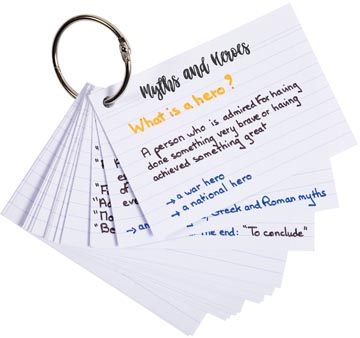 Myths and Heroes
What is a hero?
A person who is admired for having
done something very brave or having
achieved something great
→ a war hero
→ a national hero
Greek and Roman myths
→ an
the end: "To conclude"
"Be